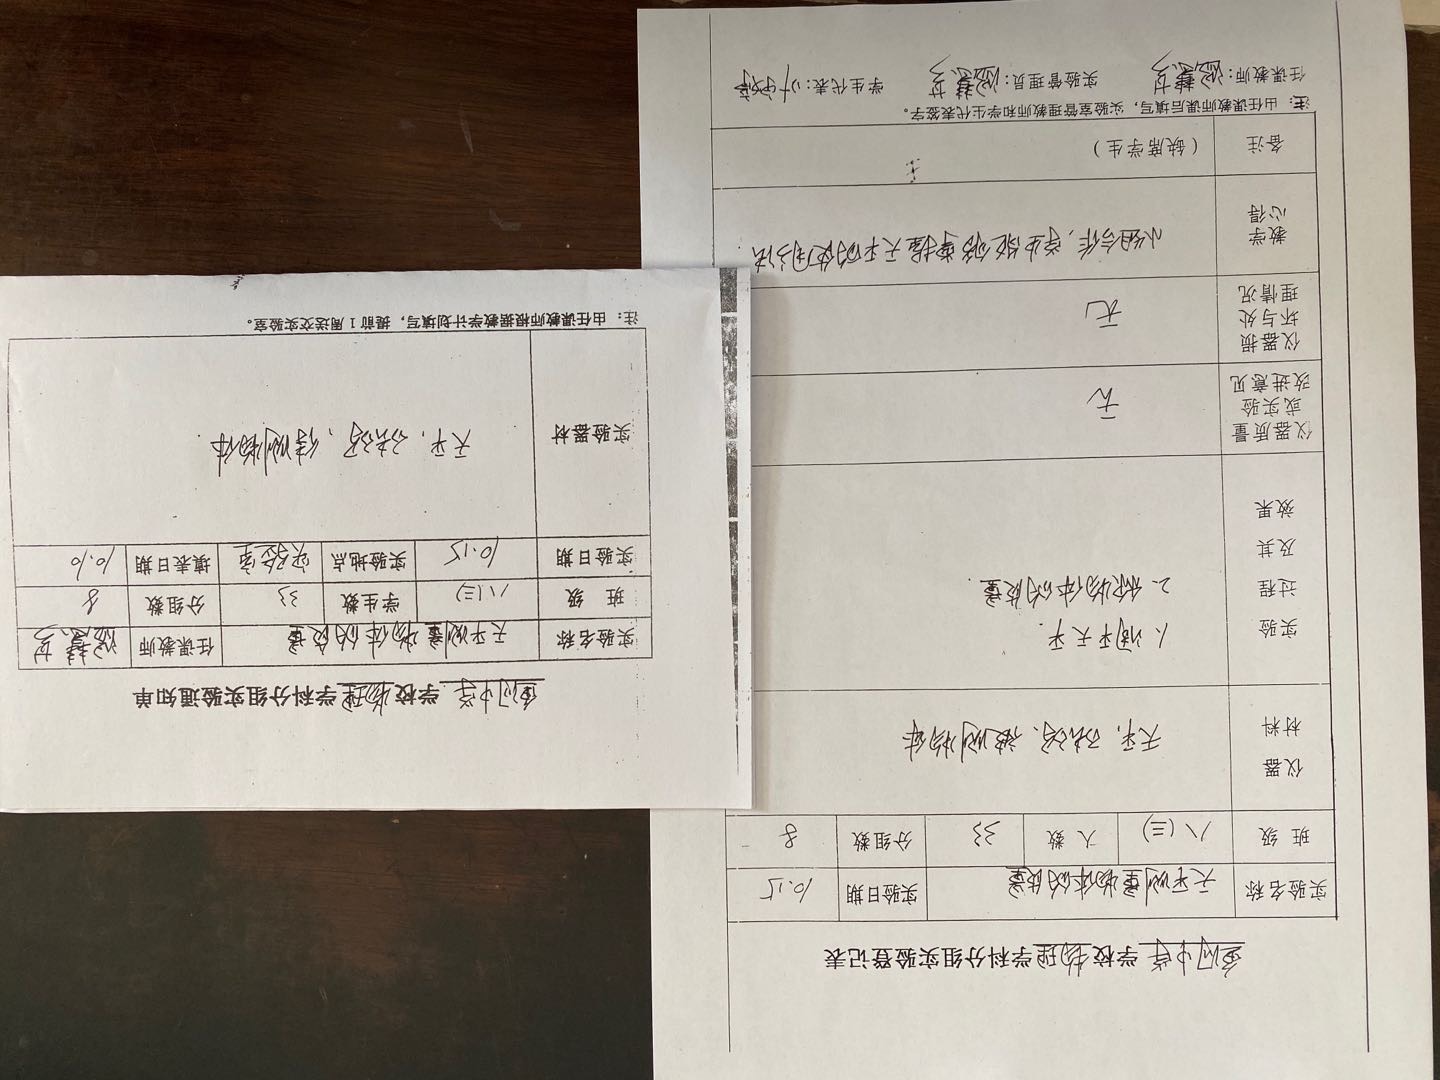 学校物理学科分组实验登记表
实验名称 天平测量物体的质量 实验日期 10.15
班 级 八(三) 人 数 33 分组数 8
仪器
材料
天平,砝码、被测物体
实验
过程
及其
效果
1、调平天平
2、称物体的质量
仪器质量
或实验
改进意见
无
仪器损
坏与处
理情况
无
教学
心得
小组合作,学生能够掌握天平的使用方法
备注 (缺席学生)
注:由任课教师课后填写,实验室管理教师和学生代表签字。
任课教师: 实验管理员: 学生代表:
学校物理学科分组实验通知单
实验名称 天平测量物体的质量 任课教师
班 级 八(三) 学生数 33 分组数 8
实验日期 10.15 实验地点 实验室 填表日期 10.10
实验器材 天平,砝码、待测物体
注:由任课教师根据教学计划填写,提前1周送交实验室。